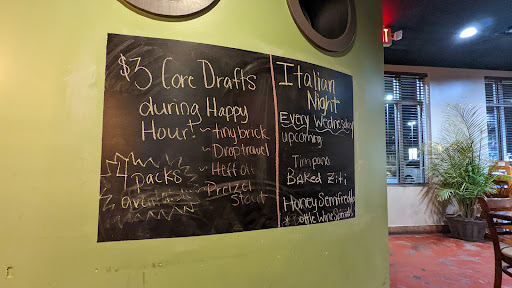 $3 Core Drafts
during Happy
Hour!
~ tiny brick
~ Drop trowel
~ Heff
Pretzel
Stout
4
Packs
Italian
Night
Every Wednesday
upcoming
Timpano
Baked Ziti
Honey Semifreddo
Wine Specials
EXIT